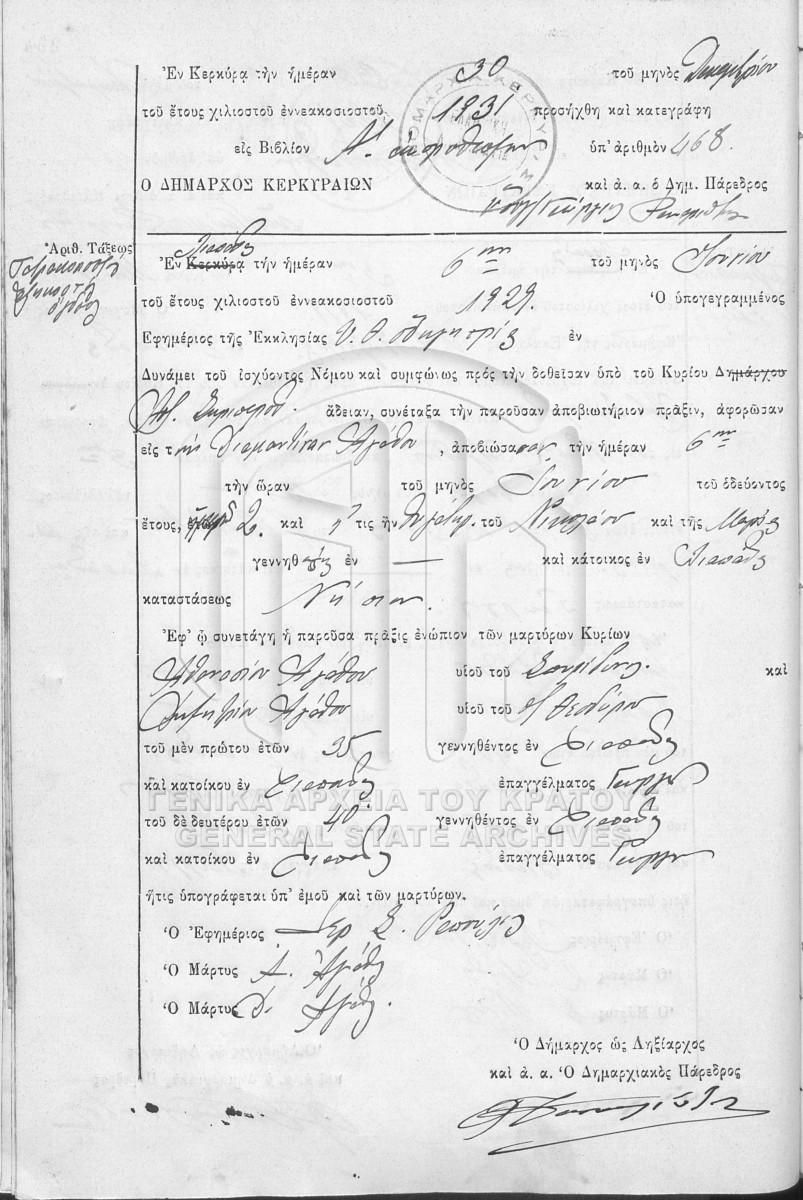 Ἐν Κερκύρᾳ τὴν ἡμέραν 30 τοῦ μηνὸς Δεκεμβρίου
τοῦ ἔτους χιλιοστοῦ ἐννεακοσιοστοῦ 1931 προσήχθη καὶ κατεγράφη
εἰς Βιβλίον Α' ὑπ' ἀριθμὸν 468
Ο ΔΗΜΑΡΧΟΣ ΚΕΡΚΥΡΑΙΩΝ καὶ ἀ. α. ὁ Δημ. Πάρεδρος
Ἀριθ. Τάξεως
Τετρακόσια
ἑξήκοντα
ὀκτώ
Λιαπάδες
Ἐν Κερκύρᾳ τὴν ἡμέραν 6ην τοῦ μηνὸς Ἰουνίου
τοῦ ἔτους χιλιοστοῦ ἐννεακοσιοστοῦ 1929. Ὁ ὑπογεγραμμένος
Ἐφημέριος τῆς Ἐκκλησίας Υ. Θ. Ὁδηγητρίας ἐν
Δυνάμει τοῦ ἰσχύοντος Νόμου καὶ συμφώνως πρὸς τὴν δοθεῖσαν ὑπὸ τοῦ Κυρίου Δημάρχου
ἄδειαν, συνέταξα τὴν παροῦσαν ἀποβιωτήριον πρᾶξιν, ἀφορῶσαν
εἰς τὴν Διαμαντίναν Ἀγάθου, ἀποβιώσασαν τὴν ἡμέραν 6ην
τὴν ὥραν τοῦ μηνὸς Ἰουνίου τοῦ ὁδεύοντος
ἔτους, 2. καὶ ἥτις ἦν θυγάτηρ τοῦ Νικολάου καὶ τῆς Μαρίας
γεννηθεῖσα ἐν — καὶ κάτοικος ἐν Λιαπάδες
καταστάσεως Νήπιον.
Ἐφ' ᾧ συνετάγη ἡ παροῦσα πρᾶξις ἐνώπιον τῶν μαρτύρων Κυρίων
Ἀθανασίου Ἀγάθου υἱοῦ τοῦ Σπυρίδωνος καὶ
Δημητρίου Ἀγάθου υἱοῦ τοῦ Θεοδώρου
τοῦ μὲν πρώτου ἐτῶν 35 γεννηθέντος ἐν Λιαπάδες
καὶ κατοίκου ἐν Λιαπάδες ἐπαγγέλματος Γεωργοῦ
τοῦ δὲ δευτέρου ἐτῶν 40 γεννηθέντος ἐν Λιαπάδες
καὶ κατοίκου ἐν Λιαπάδες ἐπαγγέλματος Γεωργοῦ
ἥτις ὑπογράφεται ὑπ' ἐμοῦ καὶ τῶν μαρτύρων.
Ὁ Ἐφημέριος Ἱερ Σ.
Ὁ Μάρτυς Α. Ἀγάθος
Ὁ Μάρτυς Δ. Ἀγάθος.
Ὁ Δήμαρχος ὡς Ληξίαρχος
καὶ ἀ. α. Ὁ Δημαρχιακὸς Πάρεδρος
ΓΕΝΙΚΑ ΑΡΧΕΙΑ ΤΟΥ ΚΡΑΤΟΥΣ
GENERAL STATE ARCHIVES